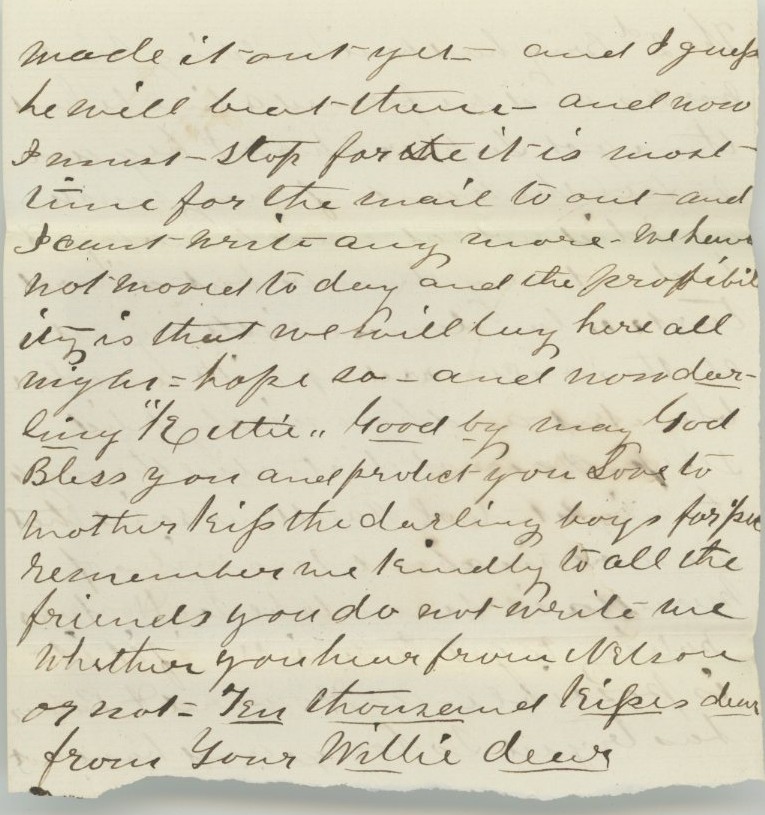 made it out yet – and I guess
he will beat them – and now
I must – Stop for the it is most –
time for the mail to out – and
I cant write any more – We have
not moved to day and the probibil
ity is that we will lay here all
night = hope so – and now dar-
ling "Kittie" Good by may God
Bless you and protect you Love to
mother Kiss the darling boys for pa
remember me kindly to all the
friends you do not write me
whether you hear from Nelson
or not = Ten thousand Kisses dear
from Your Willie dear